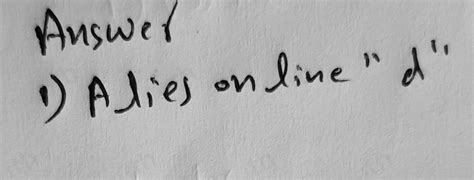 Answer
1) A lies on line "d"